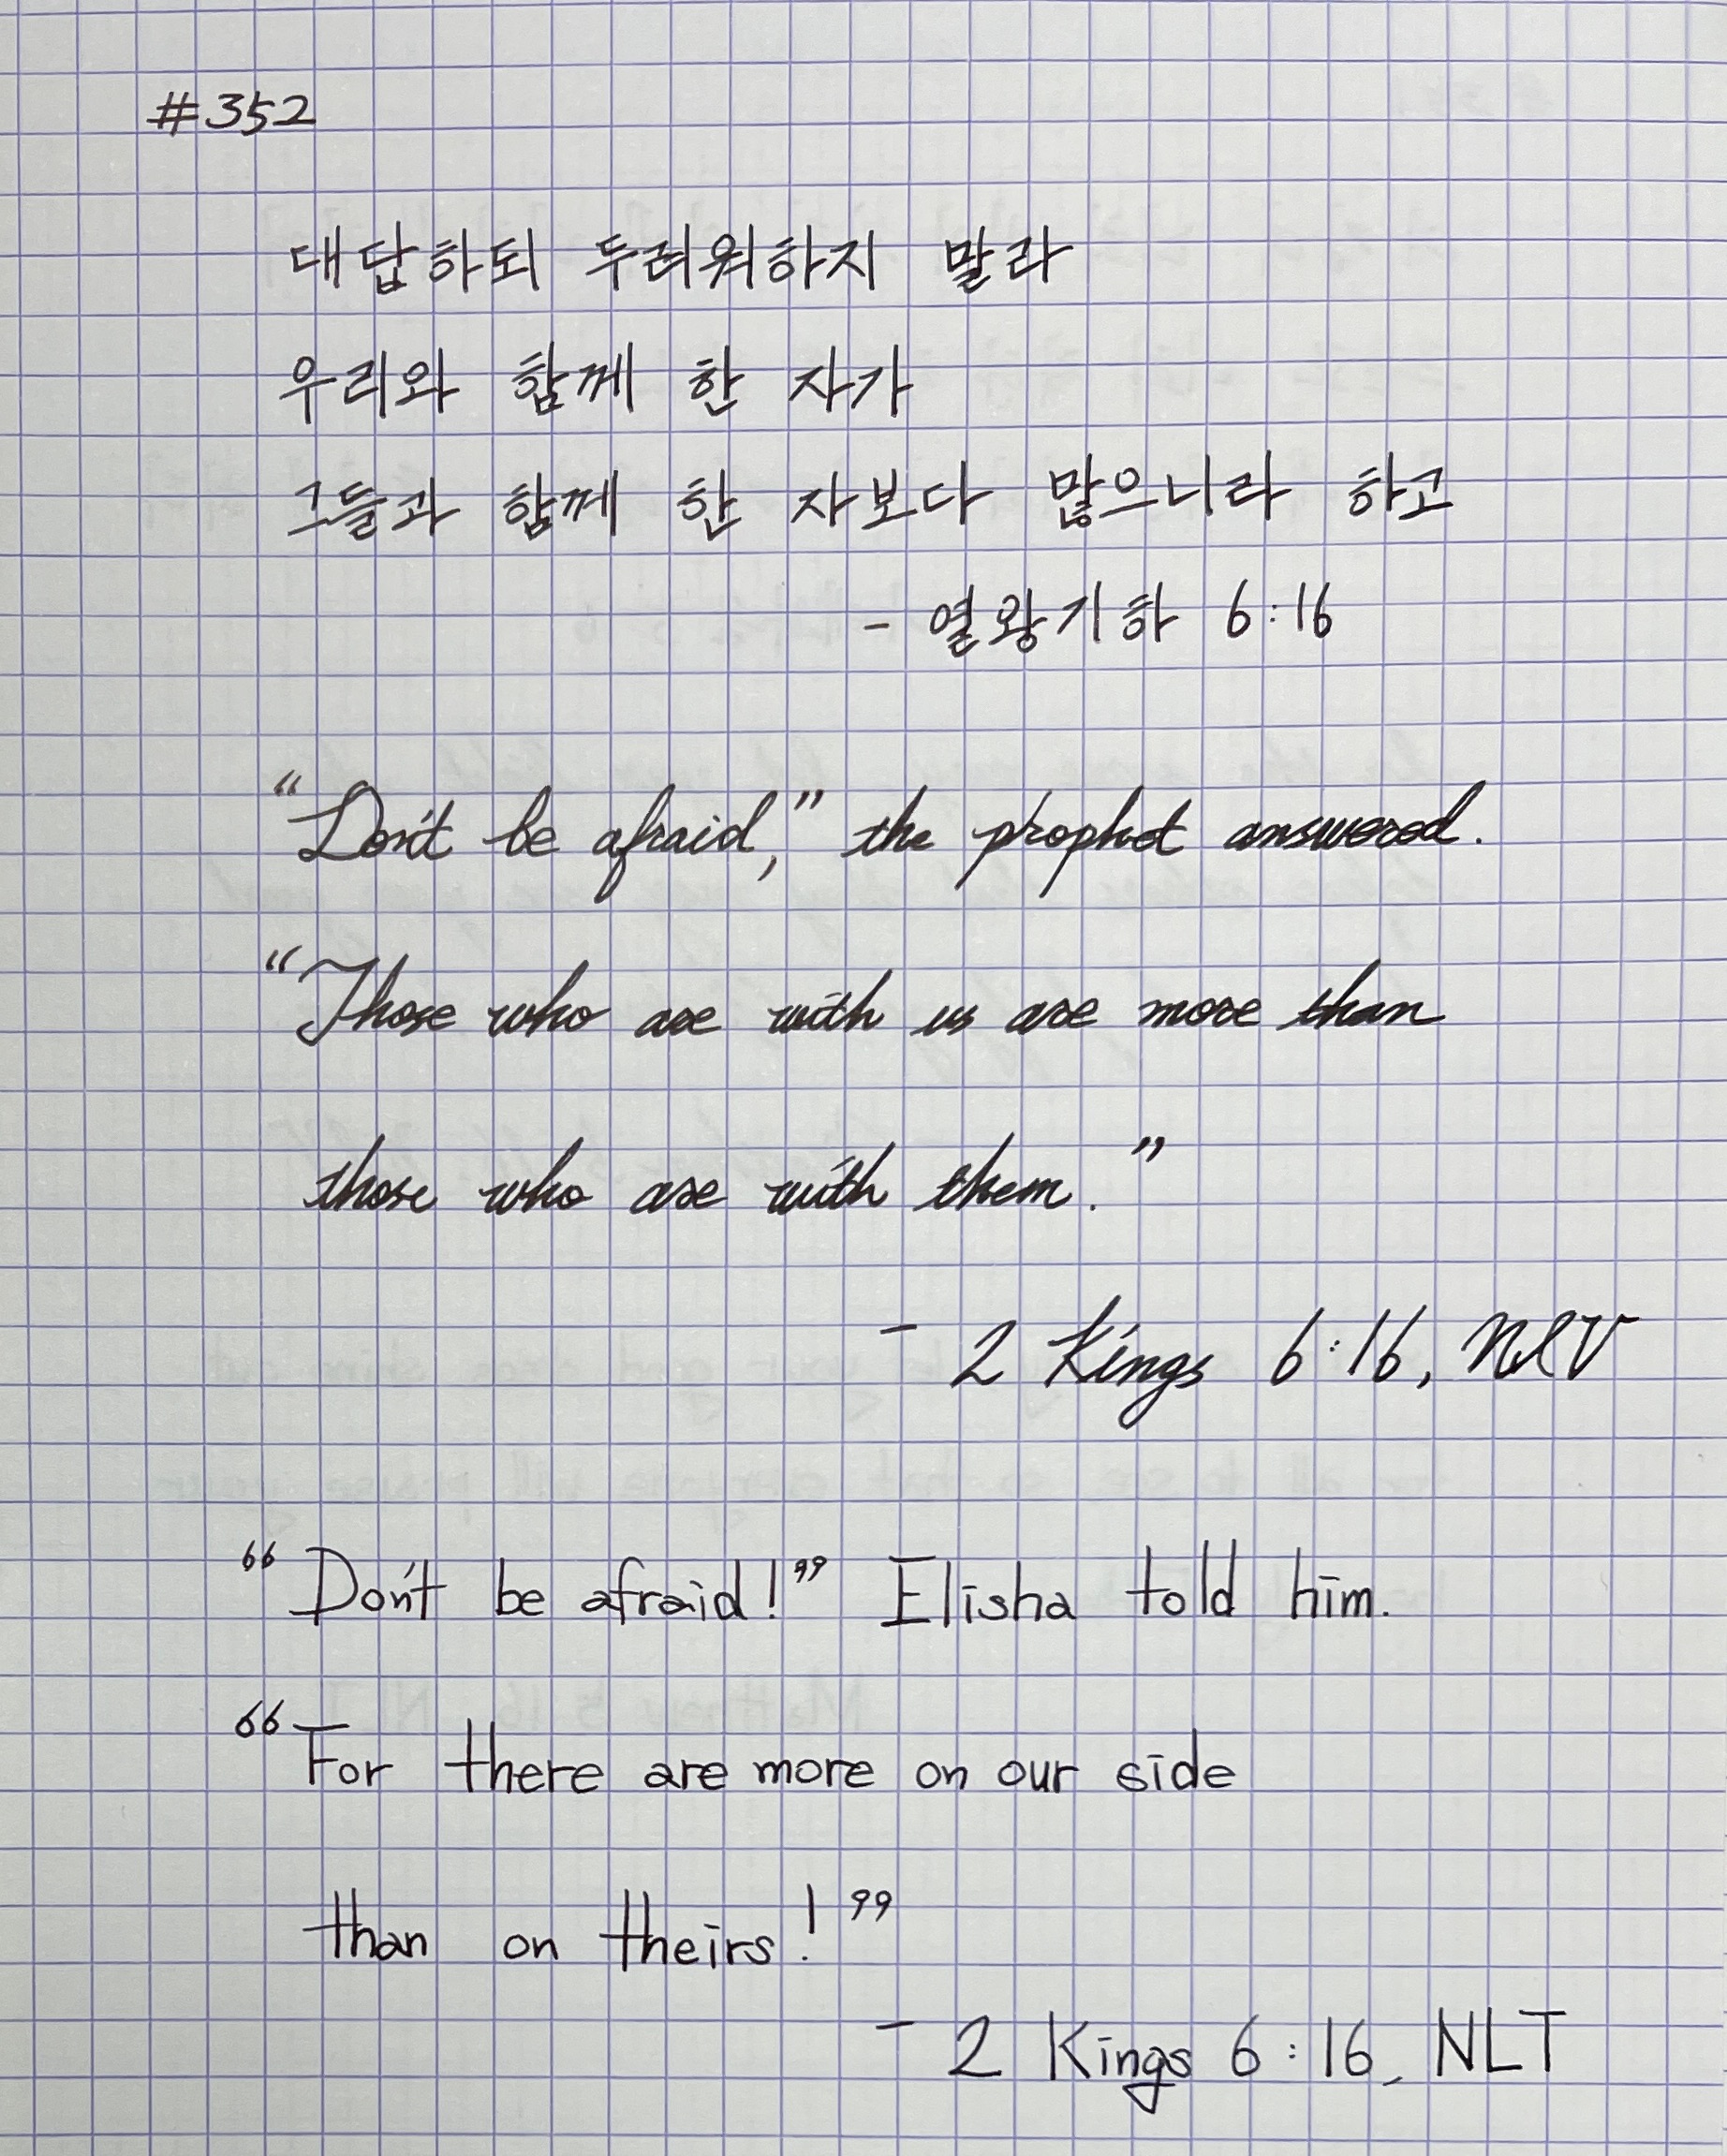 #352
대답하되 두려워하지 말라
우리와 함께 한 자가
그들과 함께 한 자보다 많으니라 하고
- 열왕기하 6:16
“Don't be afraid,” the prophet answered.
“Those who are with us are more than
those who are with them.”
- 2 Kings 6:16, NIV
“Don't be afraid!” Elisha told him.
“For there are more on our side
than on theirs!”
- 2 Kings 6:16, NLT